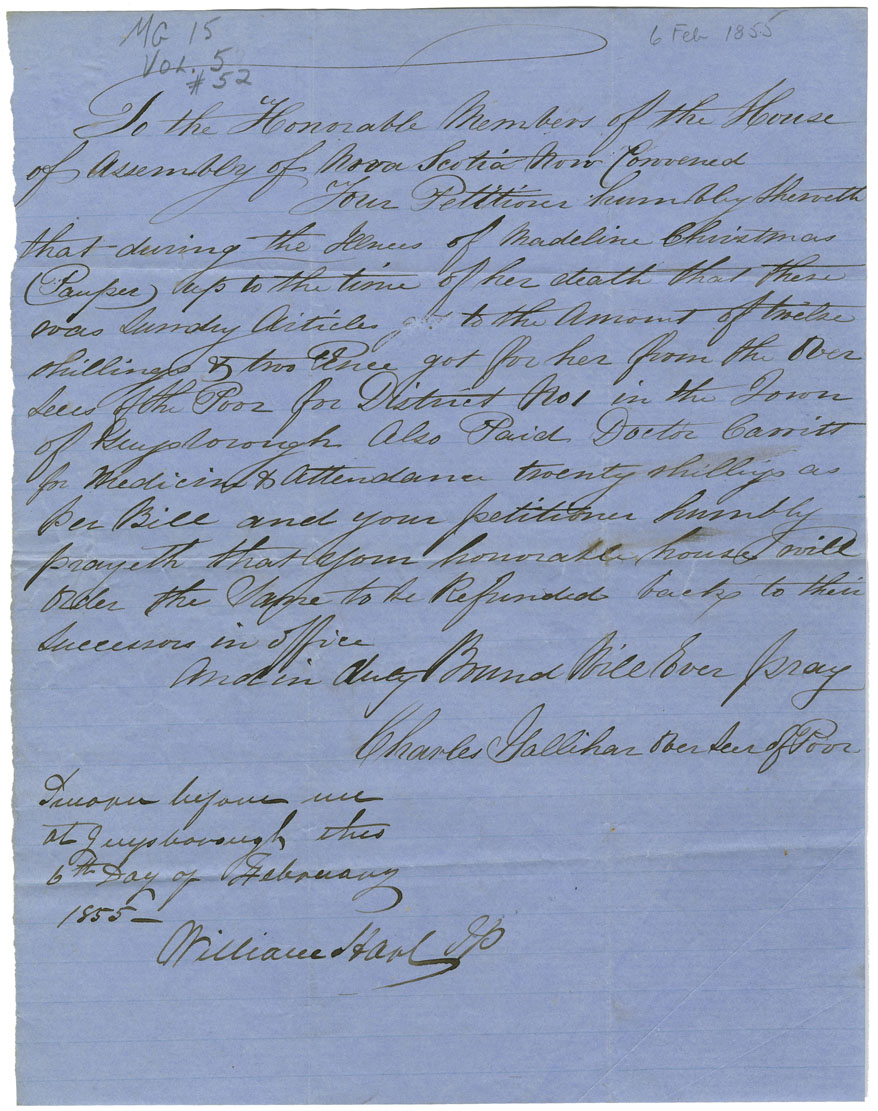 MG 15
Vol. 5
#52
6 Feb 1855
To the Honorable Members of the House
of Assembly of Nova Scotia Now Convened
Your Petitioner humbly Sheweth
that during the Ilness of Madeline Christmas
(Pauper) up to the time of her death that there
was Sundry Articles to the Amount of twelve
shillings & two Pence got for her from the Over
Seers of the Poor for District No 1 in the Town
of Guysborough Also Paid Doctor Carritt
for Medicine & Attendance twenty shillings as
per Bill and your petitioner humbly
prayeth that your honorable house will
Order the Same to be Refunded back to their
Successors in office
And in duty Bound Will Ever pray
Charles Gallihar Over Seer of Poor
Sworn before me
at Guysborough this
6th Day of February
1855
William Hart JP